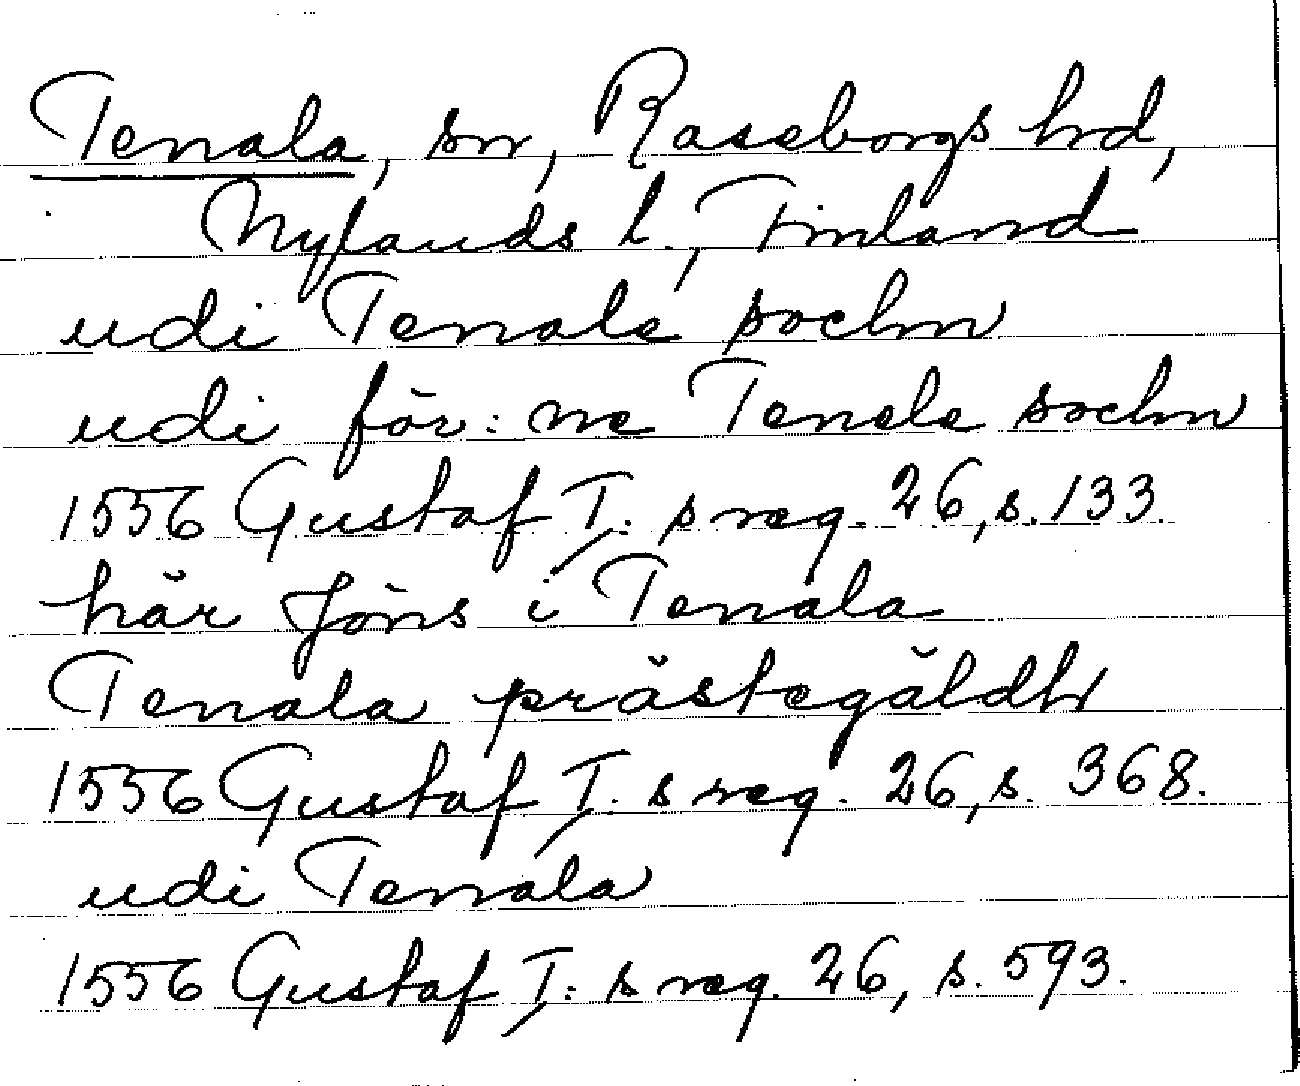 Tenala, sn, Raseborgs hrd,
Nylands l., Finland
udi Tenale sochn
udi för:ne Tenele sochn
1556 Gustaf I:s reg. 26, s. 133.
här Jöns i Tenala
Tenala prästegäldh
1556 Gustaf I:s reg. 26, s. 368.
udi Tenala
1556 Gustaf I:s reg. 26, s. 593.